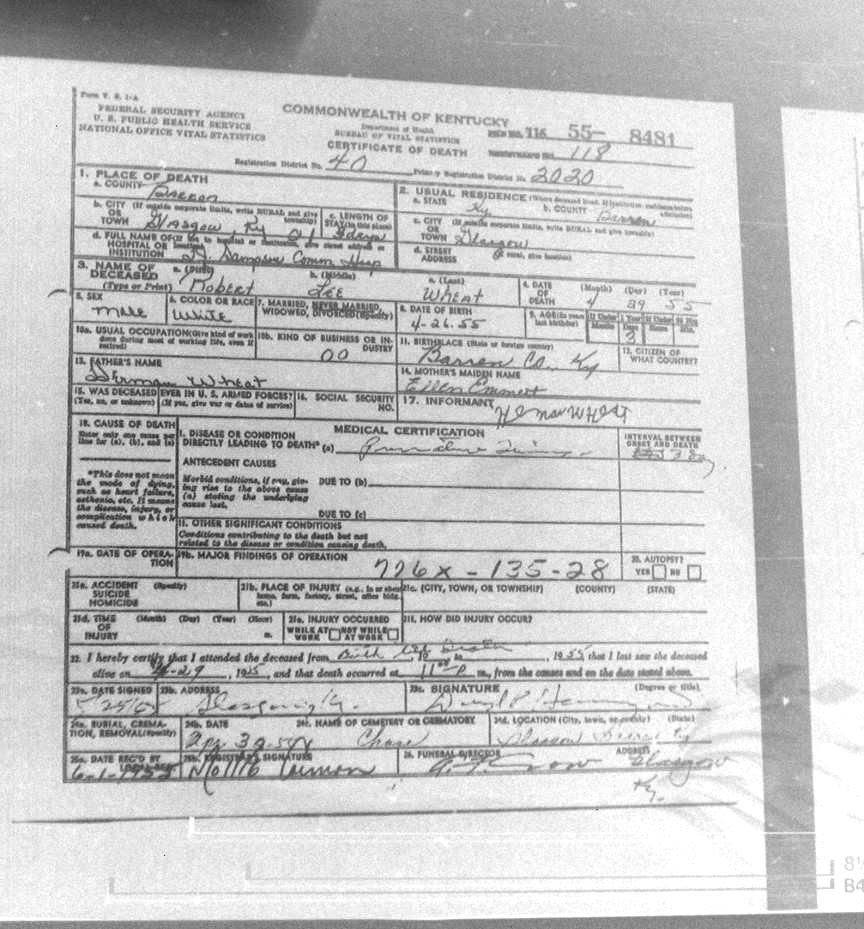 Form V. S. 1-A
FEDERAL SECURITY AGENCY
U. S. PUBLIC HEALTH SERVICE
NATIONAL OFFICE VITAL STATISTICS
COMMONWEALTH OF KENTUCKY
Department of Health
BUREAU OF VITAL STATISTICS
CERTIFICATE OF DEATH
FILE NO. 116 55- 8481
118
Registration District No. 40
Primary Registration District No. 2020
1. PLACE OF DEATH
a. COUNTY Barren
b. CITY (If outside corporate limits, write RURAL and give township)
OR
TOWN Glasgow, Ky
c. LENGTH OF
STAY (in this place)
d. FULL NAME OF
HOSPITAL OR
INSTITUTION T. J. Sampson Comm Hosp
2. USUAL RESIDENCE (Where deceased lived.
a. STATE Ky.
b. COUNTY Barren
c. CITY (If outside corporate limits, write RURAL and give township)
OR
TOWN Glasgow
d. STREET
ADDRESS (If rural, give location)
3. NAME OF
DECEASED
(Type or Print)
a. (First) Robert
b. (Middle) Lee
c. (Last) Wheat
4. DATE
OF
DEATH
(Month) (Day) (Year)
4 29 55
5. SEX
Male
6. COLOR OR RACE
White
7. MARRIED, NEVER MARRIED,
WIDOWED, DIVORCED (Specify)
8. DATE OF BIRTH
4-26-55
9. AGE (In years
last birthday)
Months Days Hours Min.
3
10a. USUAL OCCUPATION (Give kind of work
done during most of working life, even if
retired)
10b. KIND OF BUSINESS OR IN-
DUSTRY
00
11. BIRTHPLACE (State or foreign country)
Barren Co., Ky
12. CITIZEN OF
WHAT COUNTRY?
13. FATHER'S NAME
Herman Wheat
14. MOTHER'S MAIDEN NAME
Ellen Emmert
15. WAS DECEASED EVER IN U. S. ARMED FORCES?
(Yes, no, or unknown) (If yes, give war or dates of service)
16. SOCIAL SECURITY
NO.
17. INFORMANT
18. CAUSE OF DEATH
Enter only one cause per
line for (a), (b), and (c)
*This does not mean
the mode of dying,
such as heart failure,
asthenia, etc. It means
the disease, injury, or
complication which
caused death.
MEDICAL CERTIFICATION
I. DISEASE OR CONDITION
DIRECTLY LEADING TO DEATH* (a)
ANTECEDENT CAUSES
Morbid conditions, if any, giv-
ing rise to the above cause
(a) stating the underlying
cause last.
DUE TO (b)
DUE TO (c)
II. OTHER SIGNIFICANT CONDITIONS
Conditions contributing to the death but not
related to the disease or condition causing death.
INTERVAL BETWEEN
ONSET AND DEATH
19a. DATE OF OPERA-
TION
19b. MAJOR FINDINGS OF OPERATION
776x - 135-28
20. AUTOPSY?
YES NO
21a. ACCIDENT (Specify)
SUICIDE
HOMICIDE
21b. PLACE OF INJURY (e.g., in or about
home, farm, factory, street, office bldg.,
etc.)
21c. (CITY, TOWN, OR TOWNSHIP) (COUNTY) (STATE)
21d. TIME (Month) (Day) (Year) (Hour)
OF
INJURY m.
21e. INJURY OCCURRED
WHILE AT NOT WHILE
WORK AT WORK
21f. HOW DID INJURY OCCUR?
22. I hereby certify that I attended the deceased from Birth, to Death, 1955, that I last saw the deceased
alive on 4-29, and that death occurred at m., from the causes and on the date stated above.
23a. DATE SIGNED
23b. ADDRESS
Glasgow, Ky.
23c. SIGNATURE (Degree or title)
24a. BURIAL, CREMA-
TION, REMOVAL (Specify)
24b. DATE
24c. NAME OF CEMETERY OR CREMATORY
24d. LOCATION (City, town, or county) (State)
Glasgow Ky
25a. DATE REC'D BY
LOCAL REG.
6-1-1955
25b. REGISTRAR'S SIGNATURE
26. FUNERAL DIRECTOR
ADDRESS
Glasgow
Ky.